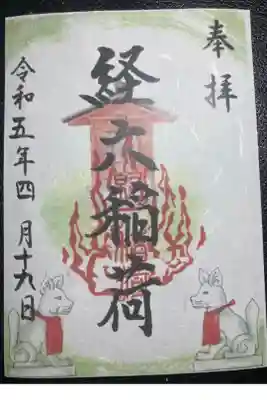 奉拝
経六稲荷
令和五年四月十九日